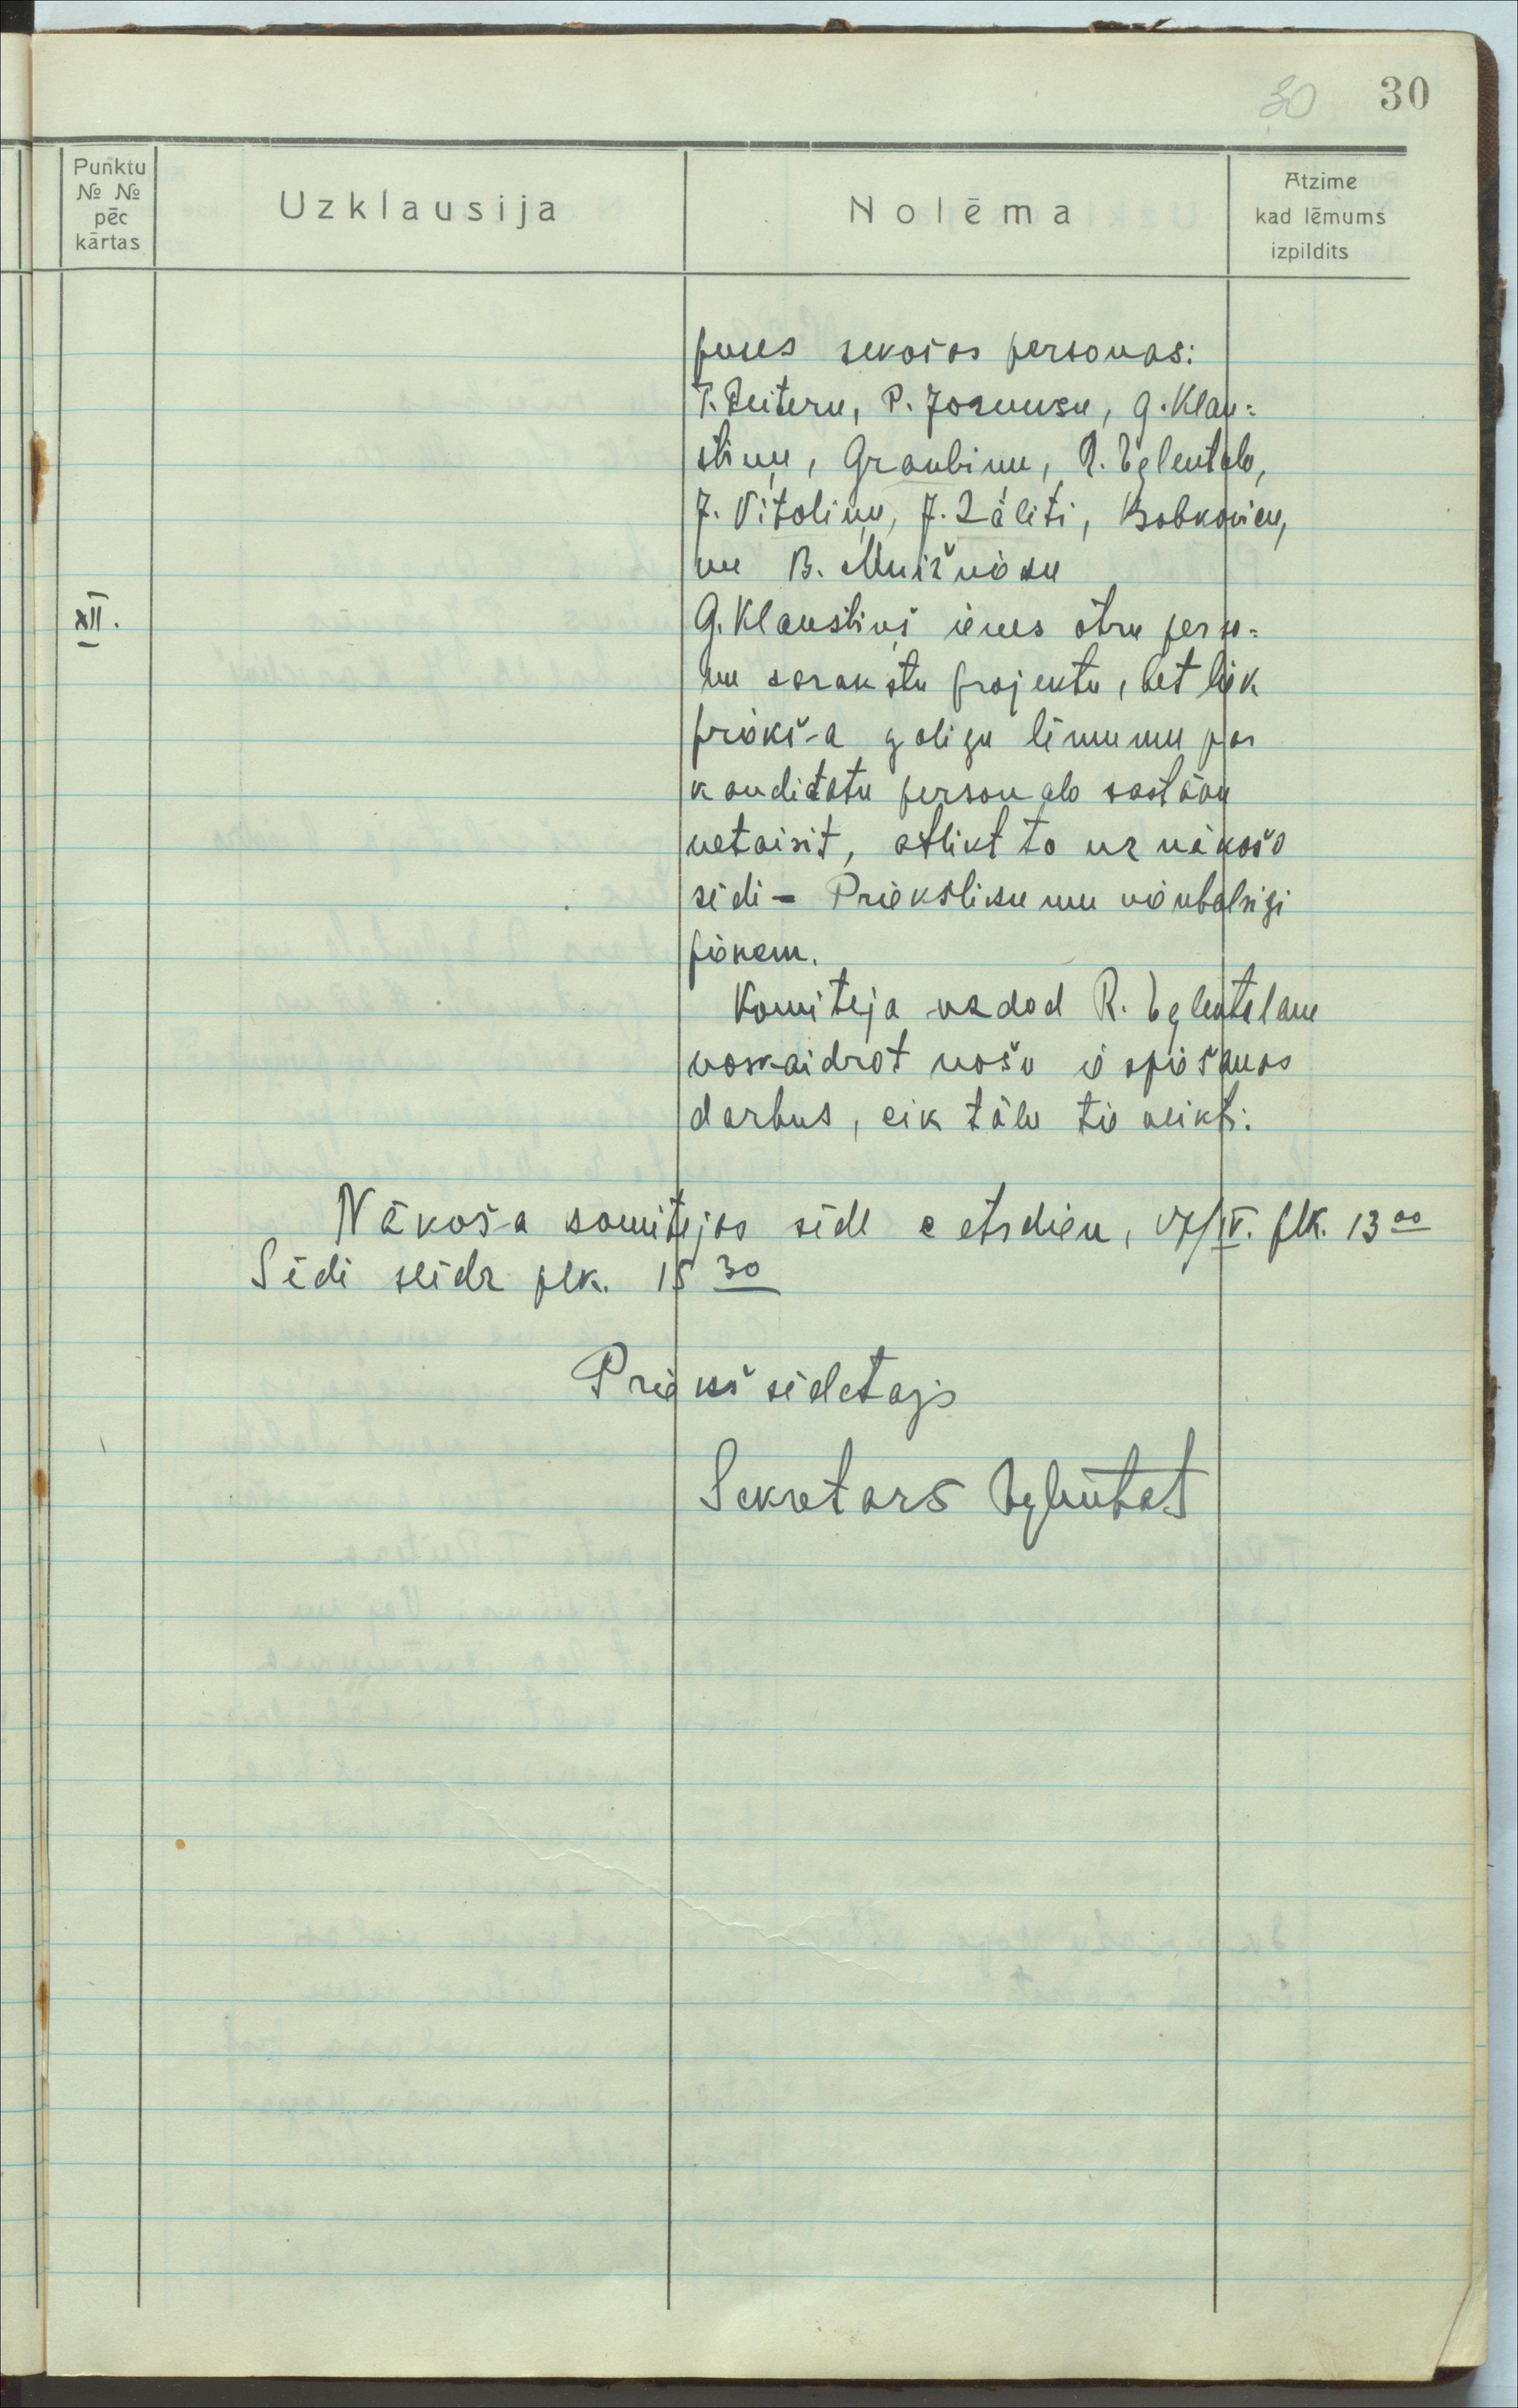 30 30
Punktu
№ №
pēc
kārtas
Uzklausija
Nolēma
Atzime
kad lēmums
izpildits
puses sekošas personas:
T. Reiteru, P. Jozuusu, G. Klau=
stiņu, Graubiņu, R. Eglentalu,
J. Vītoliņu, J. Zālīti, Bobkovicu,
un B. Muižnieku
XII.
G. Klaustiņš ienes ātru perso=
nu sarakstu projektu, bet liek
priekšā galīgu lēmumu par
kandidatu personalo sastāvu
netaisit, atlikt to uz nākošo
sēdi - Priekšlikumu vienbalsīgi
pieņem.
Komiteja uzdod R. Eglentalam
noskaidrot nošu iespiešanas
darbus, cik tālu tie veikti.
Nākošā komitejas sēde cetrdien, 17/IV. plk. 13 00
Sēdi slēdz plk. 15 30
Priekšsēdetajs
Sekretars